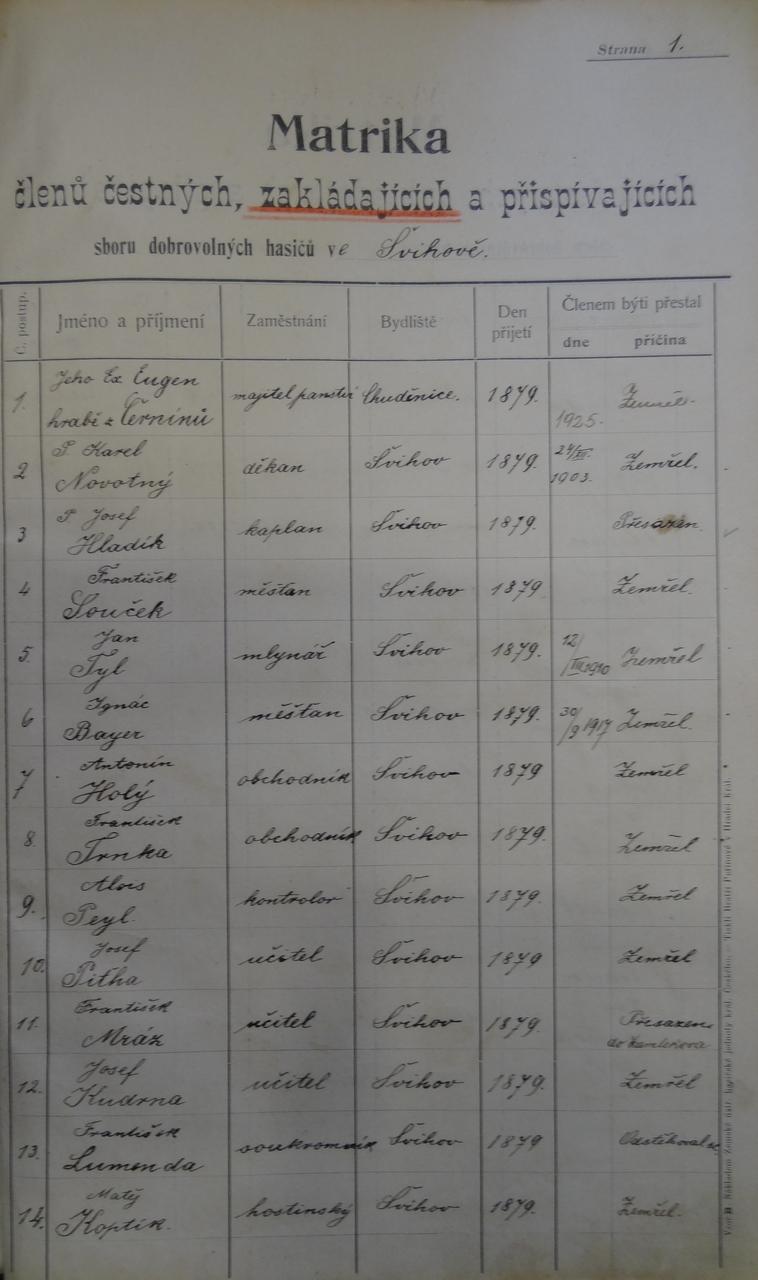 Strana 1.
Matrika
členů čestných, zakládajících a přispívajících
sboru dobrovolných hasičů ve Švihově.
Č. postup. Jméno a příjmení Zaměstnání Bydliště Den přijetí Členem býti přestal
dne příčina
1. Jeho Ex Eugen
hrabě z Černínů majitel panství Chuděnice. 1879. 1925. Zemřel.
2 P. Karel
Novotný děkan Švihov 1879. 24/XII. 1903. Zemřel.
3 P. Josef
Hladík kaplan Švihov 1879. Přesazen.
4 František
Souček měšťan Švihov 1879 Zemřel.
5. Jan
Tyl mlynář Švihov 1879. 12/III 1910 Zemřel
6 Ignác
Bayer měšťan Švihov 1879. 30/9 1917 Zemřel.
7 Antonín
Holý obchodník Švihov 1879 Zemřel
8. František
Trnka obchodník Švihov 1879. Zemřel
9. Alois
Peyl kontrolor Švihov 1879. Zemřel
10. Josef
Pitha učitel Švihov 1879 Zemřel
11. František
Mráz učitel Švihov 1879. Přesazen
do
12. Josef
Kudrna učitel Švihov 1879. Zemřel
13. František
Lumenda soukromník Švihov 1879 Odstěhoval se
14. Matěj
Koptík. hostinský Švihov 1879. Zemřel.